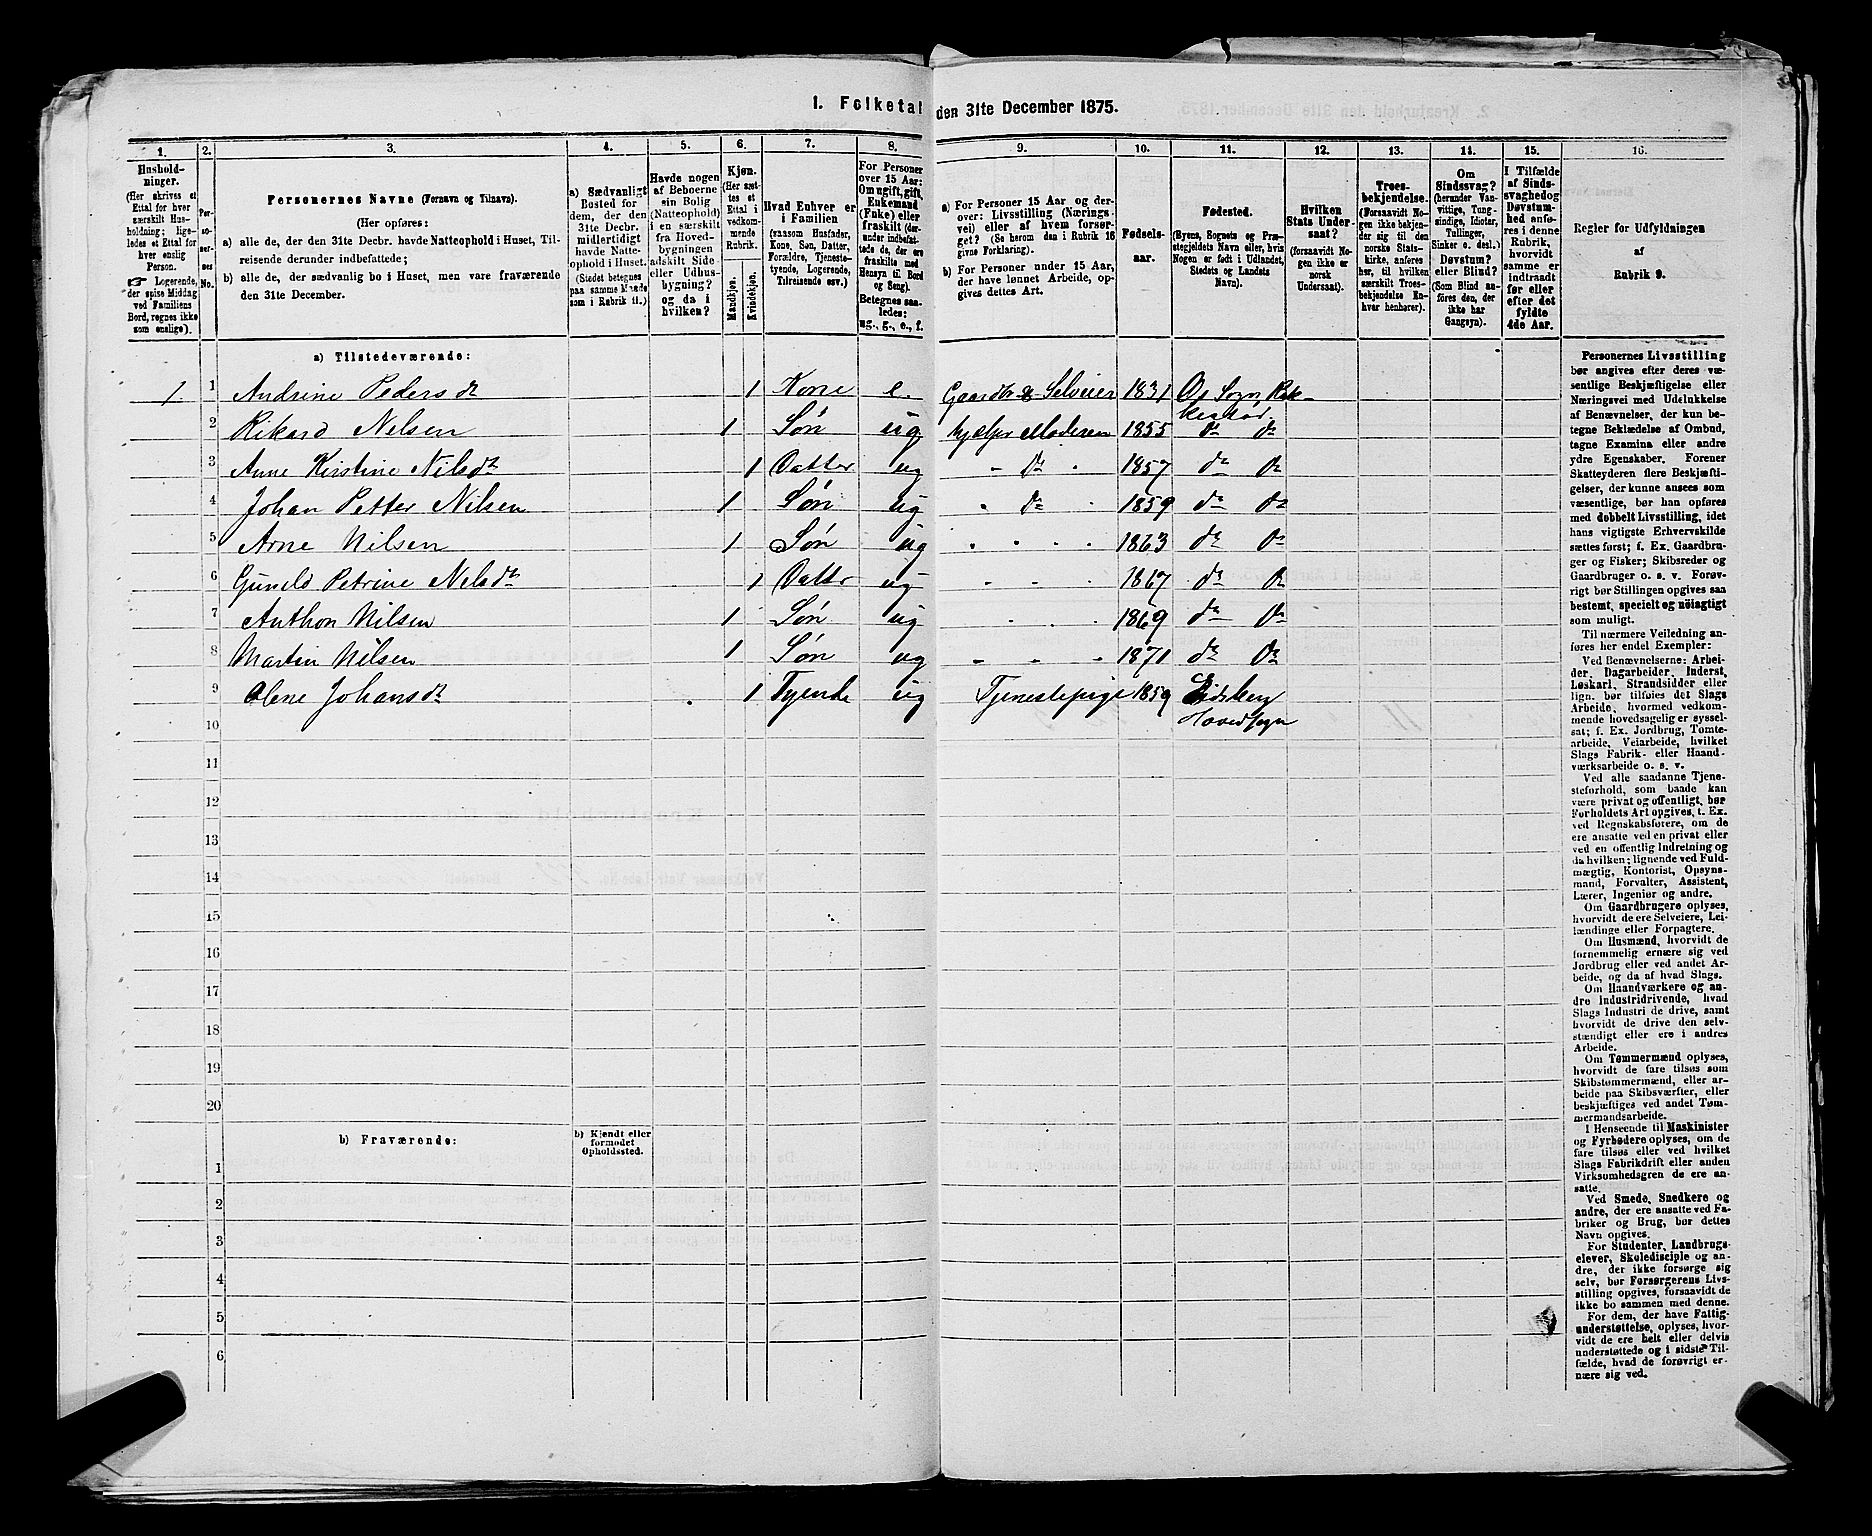 1. Folketal den 31te December 1875.
1.
Hushold-
ninger.
(Her skrives et
Ettal for hver
særskilt Hus-
holdning; lige-
ledes et Ettal for
hver enslig
Person.
☞ Logerende,
der spise Middag
ved Familiens
Bord, regnes ikke
som enslige).
2.
Per-
so-
ner-
nes
No.
3.
Personernes Navne (Fornavn og Tilnavn).
(Her opføres:
a) alle de, der den 31te Decbr. havde Natteophold i Huset, Til-
reisende derunder indbefattede;
b) alle de, der sædvanlig bo i Huset, men vare fraværende
den 31te December.
4.
a) Sædvanligt
Bosted for
dem, der den
31te Decbr.
midlertidigt
havde Natte-
ophold i Huset.
(Stedet betegnes
paa samme Maade
som i Rubrik 11.)
5.
Havde nogen
af Beboerne
sin Bolig
(Natteophold)
i en særskilt
fra Hoved-
bygningen
adskilt Side-
eller Udhus-
bygning?
og da i
hvilken?
6.
Kjøn.
(Her sæt-
tes et
Ettal i
vedkom-
mende
Rubrik.
Mandkjøn.
Kvindekjøn.
7.
Hvad Enhver er
i Familien
(saasom Husfader,
Kone, Søn, Datter,
Forældre, Tjeneste-
tyende, Logerende,
Tilreisende osv.)
8.
For Personer
over 15 Aar:
Om ugift, gift,
Enkemand
(Enke) eller
fraskilt (der-
under indbefat-
tede de, der ere
fraskilte med
Hensyn til Bord
og Seng).
Betegnes saa-
ledes:
ug., g., e., f.
9.
a) For Personer 15 Aar og der-
over: Livsstilling (Nærings-
vei) eller af hvem forsør-
get? (Se herom den i Rubrik 16
givne Forklaring).
b) For Personer under 15 Aar,
der have lønnet Arbeide, op-
gives dettes Art.
10.
Fødsels-
aar.
11.
Fødested.
(Byens, Sognets og Præ-
stegjeldets Navn eller, hvis
Nogen er født i Udlandet,
Stedets og Landets
Navn).
12.
Hvilken
Stats Under-
saat?
(forsaavidt No-
gen ikke er
norsk
Undersaat).
13.
Troes-
bekjendelse.
(Forsaavidt No-
gen ikke bekjen-
der sig til den
norske Stats-
kirke, anføres
her, til hvilken
særskilt Troes-
bekjendelse En-
hver henhører).
14.
Om
Sindssvag?
(herunder Van-
vittige, Tung-
sindige, Idioter,
Tullinger,
Sinker o. desl.)
Døvstum?
eller Blind?
(Som Blind an-
føres den, der
ikke har
Gangsyn).
15.
I Tilfælde
af Sinds-
svaghed og
Døvstum-
hed anfø-
res i denne
Rubrik,
hvorvidt
samme er
indtraadt
før eller
efter det
fyldte
4de Aar.
16.
Regler for Udfyldningen
af
Rubrik 9.
a) Tilstedeværende:
1 1 Andrine Pedersdt 1 Kone e. Gaardbr & Selveier 1831 Os Sogn Rak-
kestad.
2 Rikard Nelsen 1 Søn ug hjælper Moderen 1855 do do
3 Anne Kirstine Nilsdt 1 Datter ug - do - 1857 do do
4 Johan Petter Nilsen 1 Søn ug - do - 1859 do do
5 Arne Nilsen 1 Søn ug - - - 1863 do do
6 Gunild Petrine Nelsdt 1 Datter ug - - 1867 do do
7 Anthon Nilsen 1 Søn ug - - 1869 do do
8 Martin Nilsen 1 Søn ug - - - 1871 do do
9 Olene Johansdt 1 Tyende ug Tjenestepige 1859 Eidsberg
10 Hovedsogn
11
12
13
14
15
16
17
18
19
20
b) Fraværende:
b) Kjendt eller
formodet
Opholdssted.
1
2
3
4
5
6
Personernes Livsstilling
bør angives efter deres væ-
sentlige Beskjæftigelse eller
Næringsvei med Udelukkelse
af Benævnelser, der kun be-
tegne Beklædelse af Ombud,
tagne Examina eller andre
ydre Egenskaber. Forener
Skatteyderen flere Beskjæfti-
gelser, der kunne ansees som
væsentlige, bør han opføres
med dobbelt Livsstilling, idet
hans vigtigste Erhvervskilde
sættes først; f. Ex. Gaardbru-
ger og Fisker; Skibsreder og
Gaardbruger o. s. v. Forøv-
rigt bør Stillingen opgives saa
bestemt, specielt og nöiagtigt
som muligt.
Til nærmere Veiledning an-
føres her endel Exempler:
Ved Benævnelserne: Arbei-
der, Dagarbeider, Inderst,
Løskarl, Strandsidder eller
lign. bør tilføies det Slags
Arbeide, hvormed vedkom-
mende hovedsagelig er syssel-
sat; f. Ex. Jordbrug, Tomte-
arbeide, Veiarbeide, hvilket
Slags Fabrik- eller Haand-
værksarbeide o. s. v.
Ved alle saadanne Tjene-
steforhold, som baade kan
være privat og offentligt, bør
Forholdets Art opgives, t. Ex.
ved Regnskabsførere, om de
ere ansatte ved en privat eller
ved en offentlig Indretning og
da hvilken; lignende ved Fuld-
mægtig, Kontorist, Opsyns-
mand, Forvalter, Assistent,
Lærer, Ingeniør og andre.
Om Gaardbrugere oplyses,
hvorvidt de ere Selveiere, Lei-
lændinge eller Forpagtere.
Om Husmænd, hvorvidt de
fornemmelig ernære sig ved
Jordbrug eller ved andet Ar-
beide, og da af hvad Slags.
Om Haandværkere og an-
dre Industridrivende, hvad
Slags Industri de drive, samt
hvorvidt de drive den selv-
stændigt eller ere i andres
Arbeide.
Om Tømmermænd oplyses,
hvorvidt de fare tilsøs som
Skibstømmermænd, eller ar-
beide paa Skibsværfter, eller
beskjæftiges ved andet Tøm-
mermandsarbeide.
I Henseende til Maskinister
og Fyrbødere oplyses, om de
fare tilsøs eller ved hvilket
Slags Fabrikdrift eller anden
Virksomhedsgren de ere an-
satte.
Ved Smede, Snedkere og
andre, der ere ansatte ved Fa-
briker og Brug, bør dettes
Navn opgives.
For Studenter, Landbrugs-
elever, Skoledisciple og an-
dre, der ikke forsørge sig
selv, bør Forsørgerens Livs-
stilling opgives, forsaavidt de
ikke bo sammen med denne.
For dem, der have Fattig-
understøttelse, oplyses, hvor-
vidt de ere helt eller delvis
understøttede og i sidste Til-
fælde, hvad de forøvrigt er-
nære sig ved.